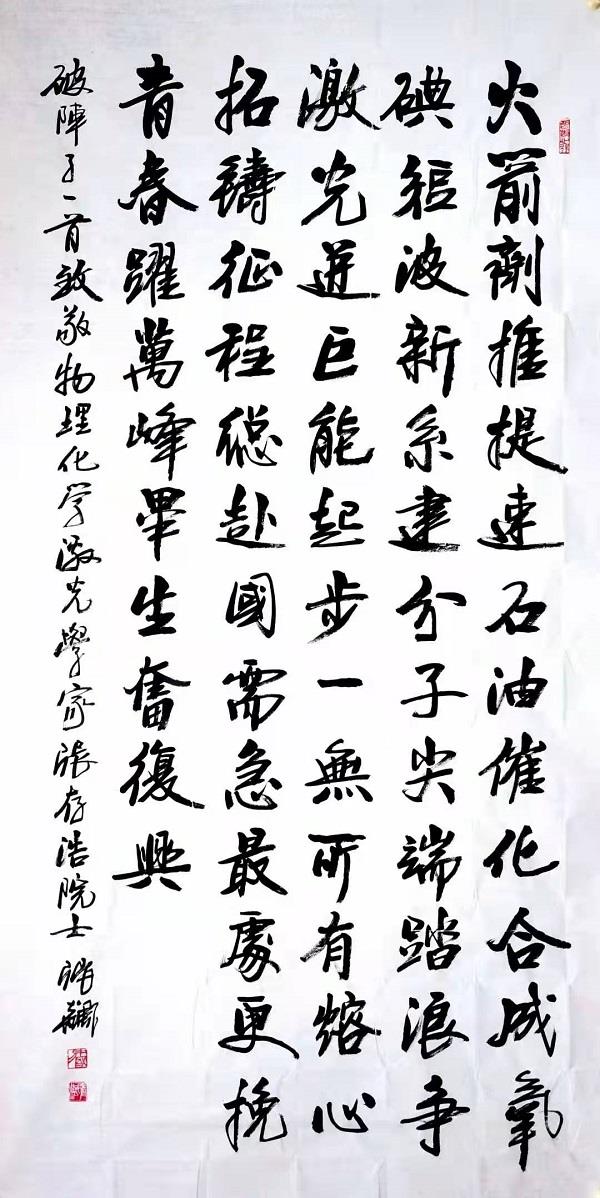 火箭劑推提速石油催化合成氧
碘短波新系建分子尖端踏浪争
激光迸巨能起步一無所有熔心
拓鑄征程總赴國需急最處更挽
青春躍萬峰畢生奮復興
破陣子一首致敬物理化学激光學家張存浩院士